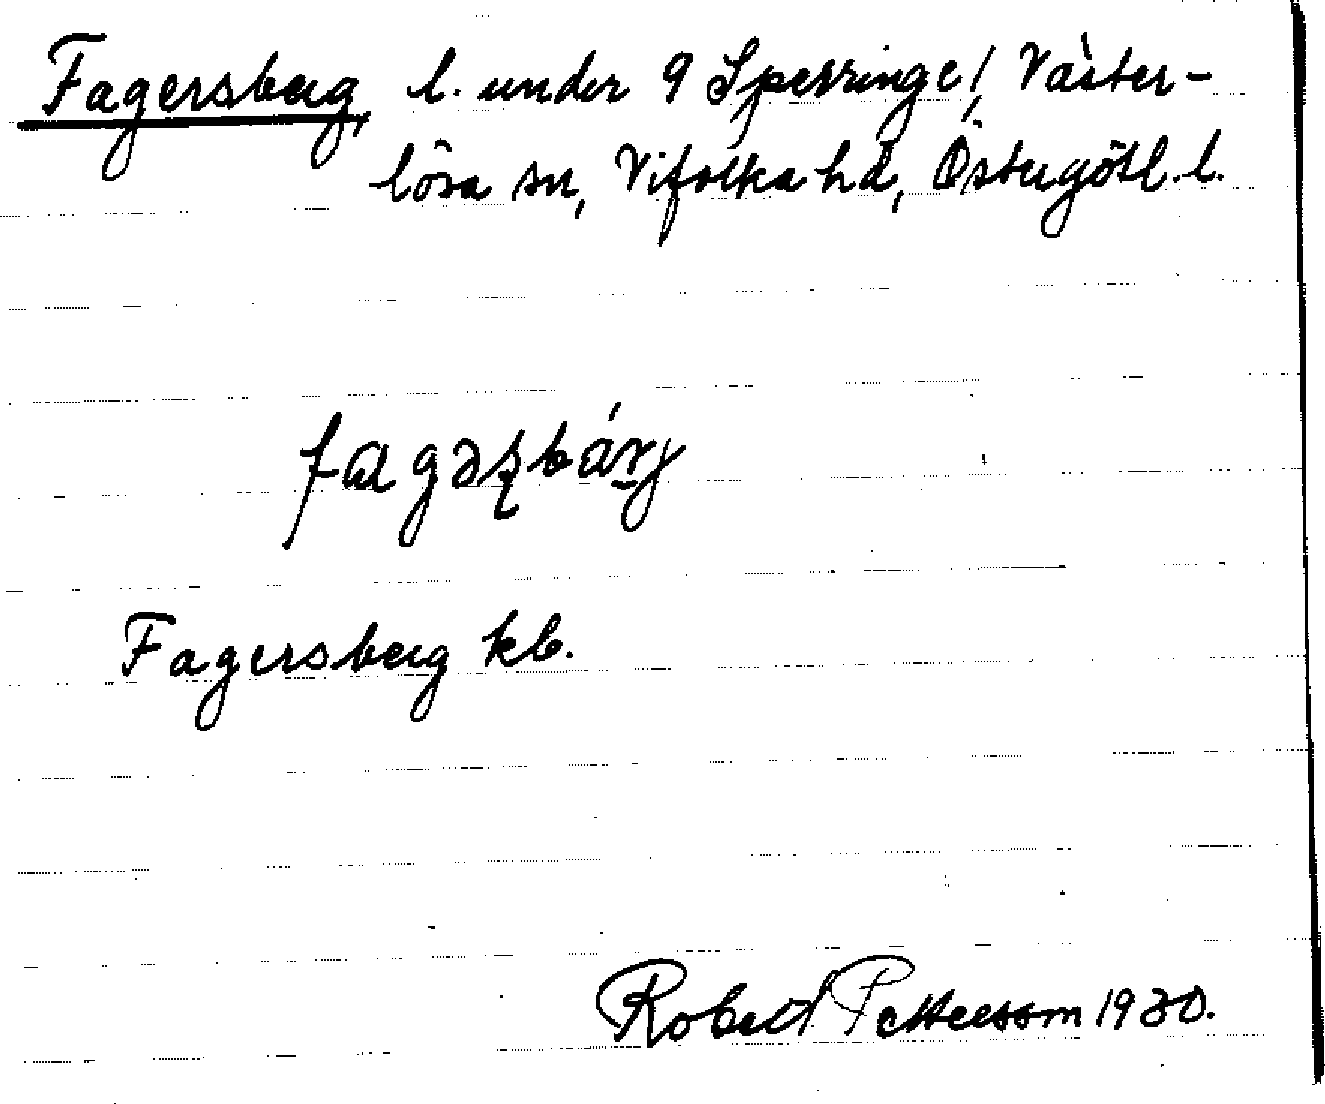 Fagersberg, l. under 9 Sperringe, Väster-
lösa sn, Vifolka hd, Östergötl. l.
fagəʂbárj
Fagersberg kb.
Robert Pettersson 1930.